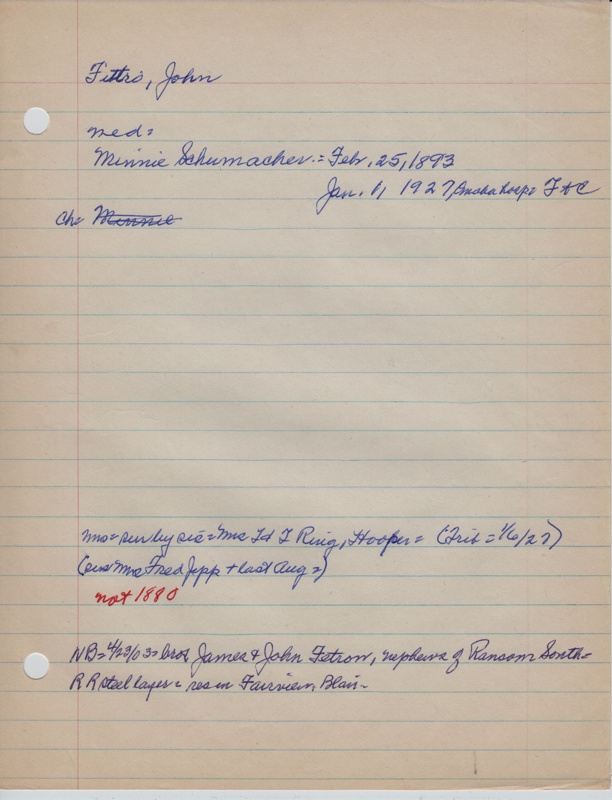 Fittro, John
med=
Minnie Schumacher = Feb. 25, 1893
Jan. 1, 1927, Omaha hosp= F+C
Ch= Minnie
mo= sur by sis= Mrs Ring, Hooper= (Trib= 1/6/27)
(sis Mrs Fred Jipp + last Aug=)
not 1880
NB= 4/23/03= bros James & John Fetrow, nephews of Ransom South=
RR steel layer= res in Fairview, Blair-